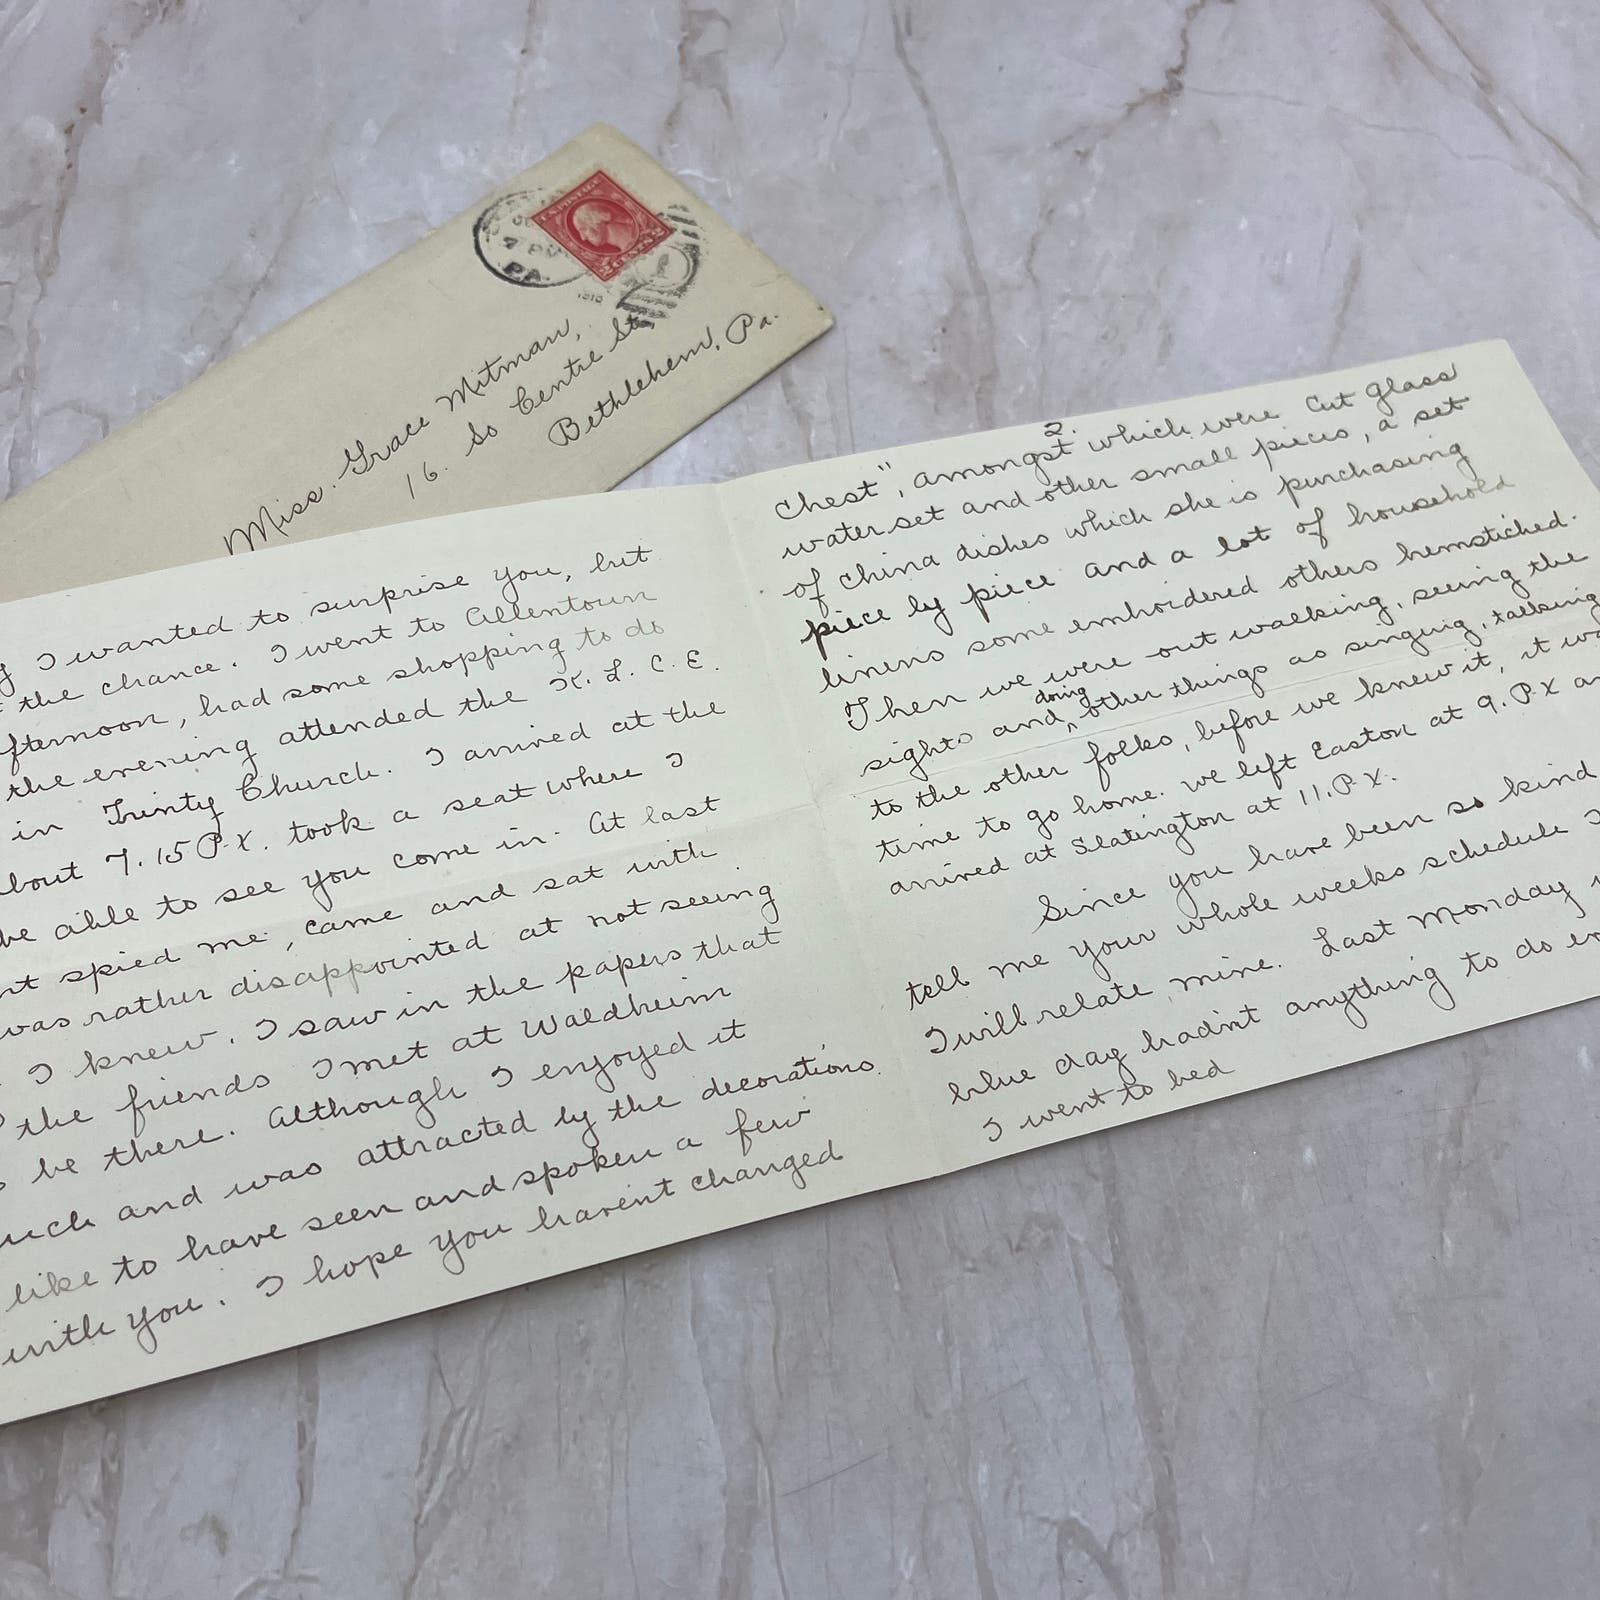 U.S. POSTAGE
2 CENTS 2
4 PM
PA.
1916
Miss. Grace Mitman,
16. So Centre St.
Bethlehem, Pa.
I wanted to surprise you, but
the chance. I went to Allentown
fternoon, had some shopping to do
the evening attended the K. L. C. E.
in Trinty Church. I arrived at the
bout 7.15 P.X. took a seat where I
be able to see you come in. At last
nt spied me, came and sat with
was rather disappointed at not seeing
I knew. I saw in the papers that
the friends I met at Waldheim
be there. Although I enjoyed it
uch and was attracted by the decorations
like to have seen and spoken a few
with you. I hope you havent changed
2.
chest", amongst which were cut glass
water set and other small pieces, a set
of china dishes which she is purchasing
piece by piece and a lot of household
linens some emboidered others hemstiched.
Then we were out walking, seeing the
sights and doing other things as singuig, talking
to the other folks, before we knew it, it wa
time to go home. we left Easton at 9. P.X an
arrived at Slatington at 11. P.X.
Since you have been so kind
tell me your whole weeks schedule I
I will relate mine. Last Monday w
blue day hadn't anything to do en
I went to bed